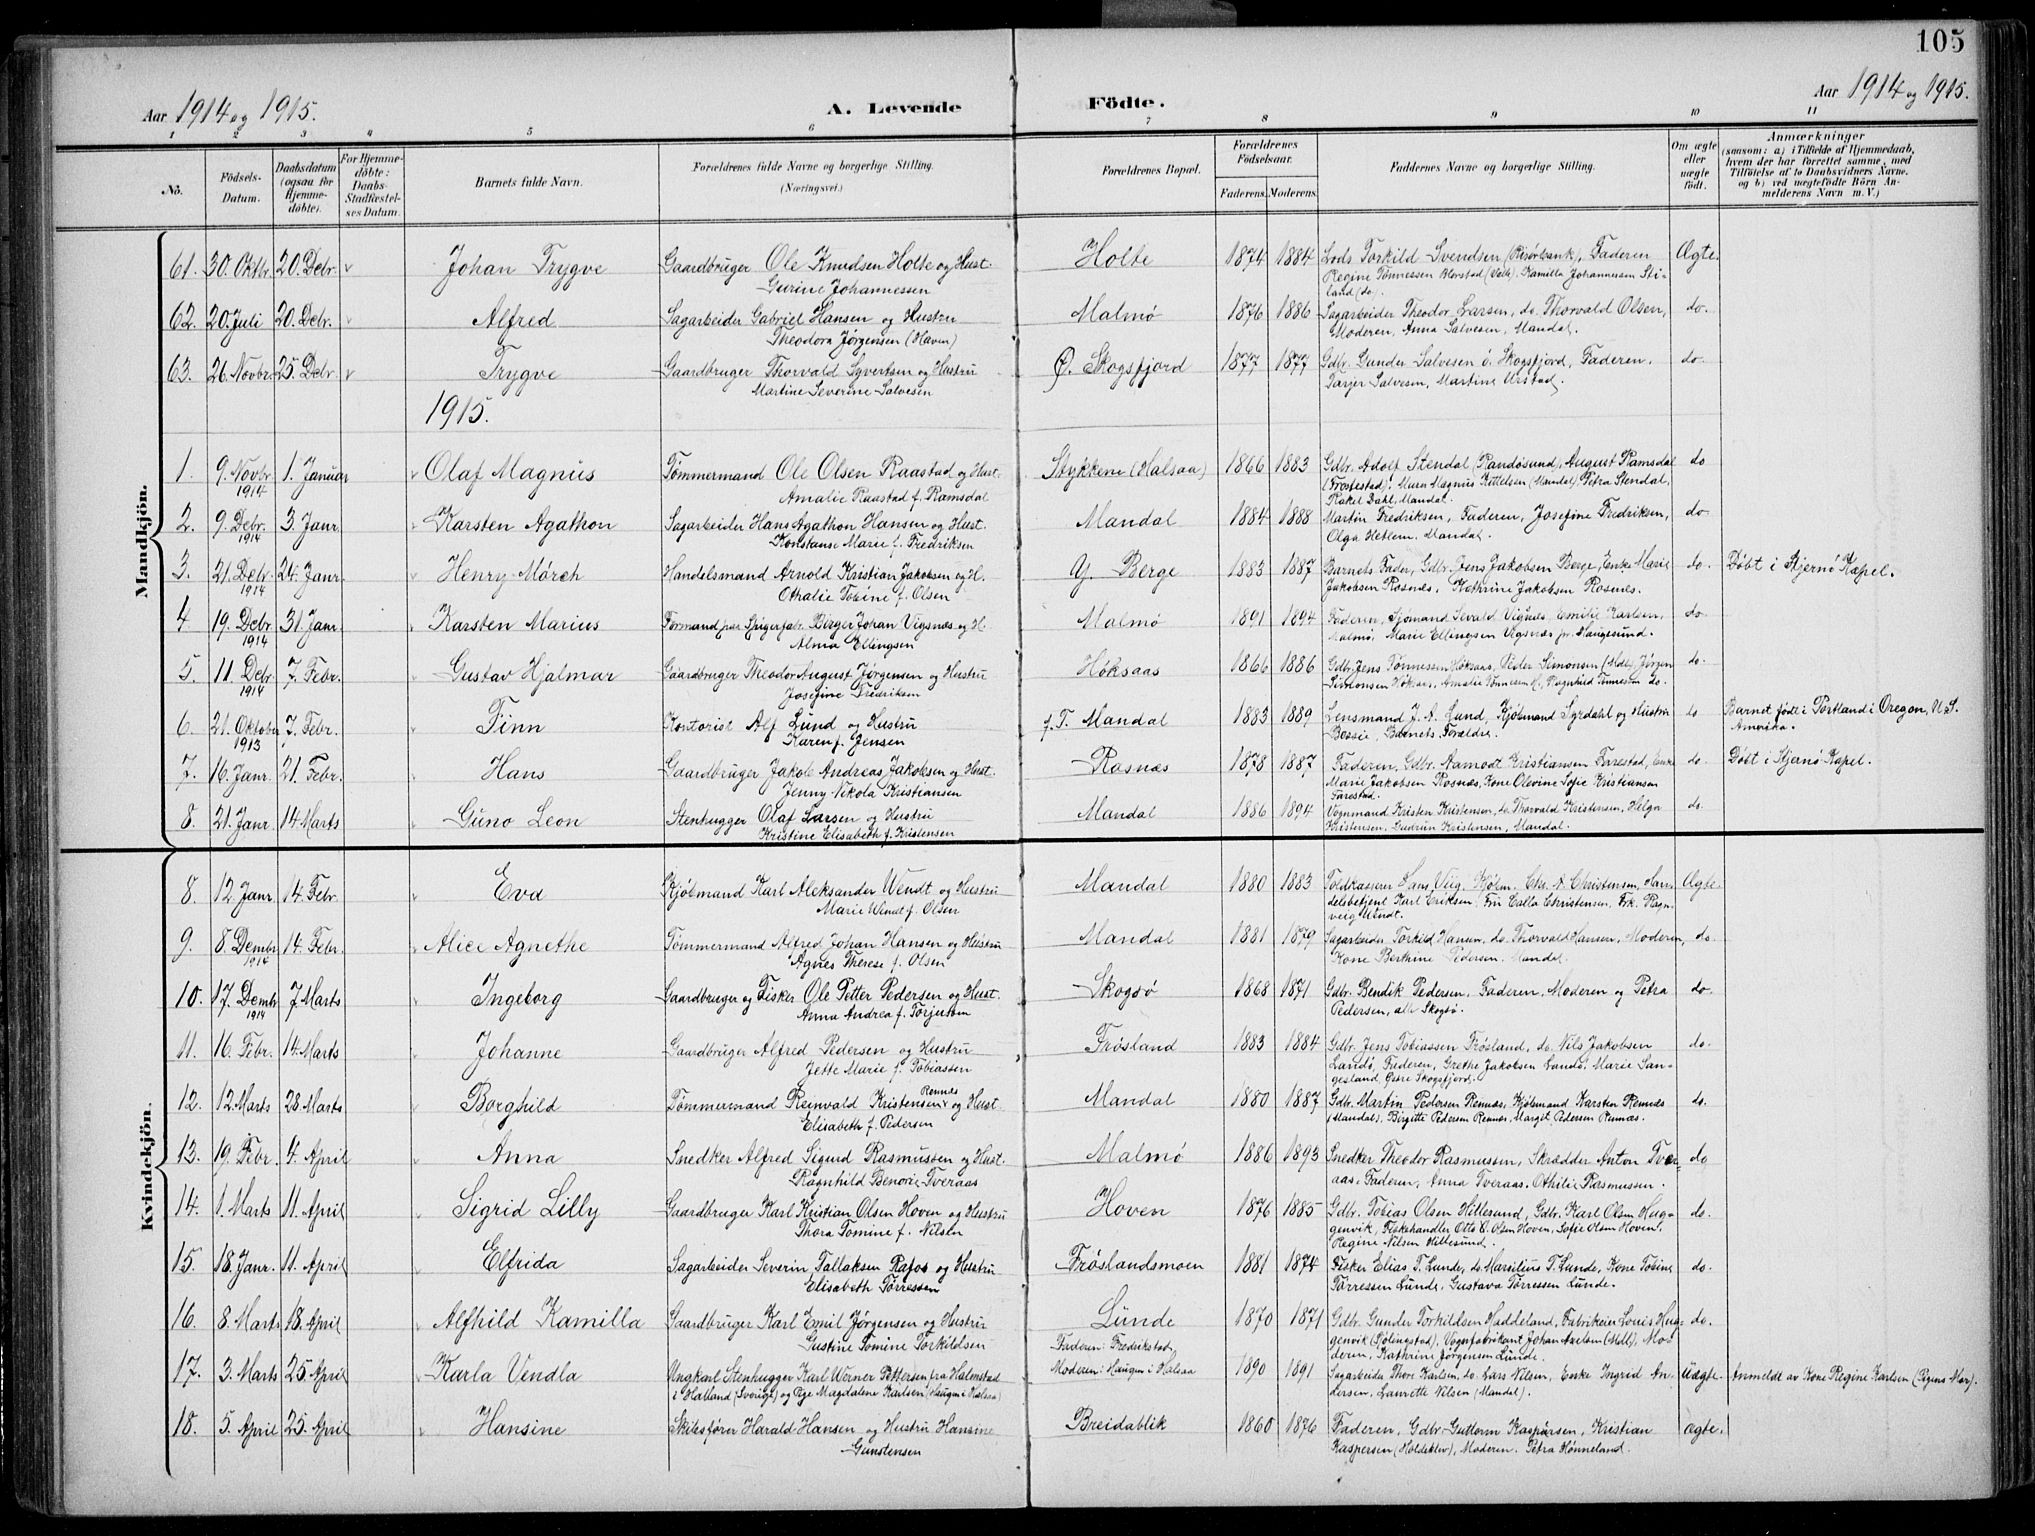 105
Aar 1914 og 1915. A. Levende Födte. Aar 1914 og 1915.
1 2 3 4 5 6 7 8 9 10 11
No. Födsels-Datum. Daabsdatum (ogsaa for Hjemmedöbte). For Hjemmedöbte: Daabs-Stadfæstelses Datum. Barnets fulde Navn. Forældrenes fulde Navne og borgerlige Stilling. (Næringsvei.) Forældrenes Bopæl. Forældrenes Födselsaar. Faderens. Moderens. Faddernes Navne og borgerlige Stilling. Om ægte eller uægte födt. Anmærkninger (saasom: a) i Tilfælde af Hjemmedaab, hvem der har forrettet samme, med Tilföielse af to Daabsvidners Navne. og b) ved uægtefödte Börn Anmelderens Navn m. V.)
Mandkjön.
61. 30. Oktbr. 20. Debr. Johan Trygve Gaardbruger Ole Knudsen Holte og Hust. Holte 1874 1884 Lods Torkild Svendsen (Risørbank), Faderen Ægte.
Gurine Johannessen Regine Tønnessen (Valle), Kamilla Johannessen Stiland (do).
62. 20. Juli 20. Debr. Alfred Sagarbeider Gabriel Hansen og Hustru Malmø 1876 1886 Sagarbeider Theodor Larsen, do. Thorvald Olsen, do.
Theodora Jørgensen (Haven) Moderen, Anna Salvesen, Mandal.
63. 26. Novbr. 25. Debr. Trygve Gaardbruger Thorvald Syvertsen og Hustru Ø. Skogsfjord 1877 1877 Gdbr. Gunder Salvesen ö. Skogsfjord, Faderen, do.
Martine Severine Salvesen Tarjer Salvesen, Martine Urstad.
1915.
1. 9. Novbr. 1914 1. Januar Olaf Magnus Tømmermand Ole Olsen Raastad og Hust. Stykkene (Halsaa) 1866 1883 Gdbr. Adolf Stendal (Randøsund), August Ramsdal do
Amalie Raastad f. Ramsdal (Frøstestad), Murm. Magnus Kittelsen (Mandal), Petra Stendal, Rakel Dahl, Mandal.
2. 9. Debr. 1914 3. Janr. Karsten Agathon Sagarbeider Hans Agathon Hansen og Hust. Mandal 1884 1888 Martin Fredriksen, Faderen, Josefine Fredriksen, do
Konstanse Marie f. Fredriksen Olga Hetlem, Mandal.
3. 21. Debr. 1914 24. Janr. Henry Mörch Handelsmand Arnold Kristian Jakobsen og H. Y. Berge 1883 1887 Barnets Fader, Gdbr. Jens Jakobsen Berge, Enke Marie do. Døbt i Stjernø Kapel.
Othalie Tobine f. Olsen Jakobsen Rosnes, Kathrine Jakobsen Rosnes.
4 19. Debr. 1914 31. Janr. Karsten Marius Formand paa Spigerfab. Birger Johan Vigsnæs og H. Malmø 1891 1894 Faderen, Sjømand Sevald Vigsnes, Emilie Karlsen, do.
Alma Ellingsen Malmø, Marie Ellingsen Vigsnæs pr. Haugesund.
5. 11. Debr. 1914 7. Febr. Gustav Hjalmar Gaardbruger Theodor August Jørgensen og Hustru Høksaas 1866 1886 Gdbr. Jens Tønnessen Høksaas, Peder Simonsen (Mdl), Jørgen do.
Josefine Fredriksen Simonsen Høksaas, Amalie Tønnessen, Ragnhild Tønnessen do.
6. 21. Oktober 1913 7. Febr. Finn Kontorist Alf Lund og Hustru f. T. Mandal 1883 1889 Lensmand J. A. Lund, Kjøbmand Syrdahl og Hustru do Barnet født i Portland i Oregon, U.S. Amerika.
Karen f. Jensen Bessie, Barnets Forældre.
7. 16. Janr. 21. Febr. Hans Gaardbruger Jakob Andreas Jakobsen og Hust. Rosnæs 1878 1887 Faderen, Gdbr. Aamodt Kristiansen Farestad, Enke do. Døbt i Stjernö Kapel.
Jenny Nikola Kristiansen Marie Jakobsen Rosnæs, Kone Olevine Sofie Kristiansen Farestad.
8. 21. Janr. 14 Marts Guno Leon Stenhugger Olaf Larsen og Hustru Mandal 1886 1894 Vognmand Kristen Kristensen, do. Thorvald Kristensen, Helga do.
Kristine Elisabeth f. Kristensen Kristensen, Gudrun Kristensen, Mandal.
Kvindekjön.
8. 12. Janr. 14. Febr. Eva Kjøbmand Karl Aleksander Wendt og Hustru Mandal 1880 1883 Toldkasserer Hans Kjølm. Chr. A. Christensen, Handelsbetjent Ægte.
Marie Wendt f. Olsen Karl Eriksen, Fru Calla Christensen, Frk. Ragnveig Wendt.
9. 8. Dembr. 1914 14. Febr. Alice Agnethe Tømmermand Alfred Johan Hansen og Hustru Mandal 1881 1879 Sagarbeider Torkild Hansen, do. Thorvald Hansen, Moderen, do.
Agnes Therese f. Olsen Kone Berthine Pedersen, Mandal.
10. 17. Dembr. 1914 7. Marts Ingeborg Gaardbruger og Fisker Ole Petter Pedersen og Hust. Skogsø 1868 1871 Gdbr. Bendik Pedersen, Faderen, Moderen og Petra do.
Anna Andrea f. Torjussen Pedersen, alle Skogsø.
11. 16. Febr. 14. Marts Johanne Gaardbruger Alfred Pedersen og Hustru Frøsland 1883 1884 Gdbr. Jens Tobiassen Frøsland, do. Nils Jakobsen do.
Jette Marie f. Tobiassen Landø, Faderen, Grethe Jakobsen Landø, Marie Sangesland, Østre Skogsfjord.
12. 12. Marts 28. Marts Borghild Tømmermand Reinvald Kristensen Rennes og Hust. Mandal 1880 1887 Gdbr. Martin Pedersen Rennæs, Kjøbmand Karsten Rennæs do.
Elisabeth f. Pedersen (Mandal), Birgitte Pedersen Rennæs, Margit Pedersen Rennæs.
13. 19. Febr. 4. April Anna Snedker Alfred Sigurd Rasmussen og Hust. Malmø 1886 1893 Snedker Theodor Rasmussen, Skrædder Anton Tveraas, do
Ragnhild Benorie Tveraas Faderen, Anna Tveraas, Othilie Rasmussen.
14. 1. Marts 11. April Sigrid Lilly Gaardbruger Karl Kristian Olsen Hoven og Hustru Hoven 1876 1885 Gdbr. Tobias Olsen Hillesund, Gdbr. Karl Olsen Haugenvik, do.
Thora Tomine f. Nilsen Fiskehandler Otto O. Olsen Hoven, Sofie Olsen Hoven, Regine Nilsen Hillesund.
15. 18. Janr. 11. April Elfrida Sagarbeider Severin Tallaksen Rafos og Hustru Frøslandsmoen 1881 1874 Fisker Elias T. Lunde, do. Marsilius T. Lunde, Kone Tobine do.
Elisabeth Torressen Torressen Lunde, Gustava Torressen Lunde.
16. 8. Marts 18. April Alfhild Kamilla Gaardbruger Karl Emil Jørgensen og Hustru Lunde 1870 1871 Gdbr. Gunder Torkildsen Haddeland, Fabrikeier Louis Haugenvik do.
Gustine Tomine Torkildsen (Sölingstad), Vognfabrikant Johan Axelsen (Mdl), Moderen, Kathrine Jørgensen Lunde.
17. 3. Marts 25. April Karla Vendla Ungkarl Stenhugger Karl Werner Pettersen fra Halmstad Faderen: Fredrikstad, Moderen: Haugen i Halsaa 1890 1891 Sagarbeider Thore Karlsen, do. Lars Nilsen, Enke Ingrid Andersen, Uægte. Anmeldt av Kone Regine Karlsen (Pigens Mor).
i Halland (Sverige) og Pige Magdalene Karlsen (Haugen i Halsaa) Laurette Nilsen (Mandal).
18. 5. April 25. April Hansine Skibsfører Harald Hansen og Hustru Hansine Breidablik 1860 1876 Faderen, Gdbr. Guttorm Kaspersen, Kristian ægte.
Gunstensen Kaspersen (Holdeklev), Moderen. Petra Hønneland.